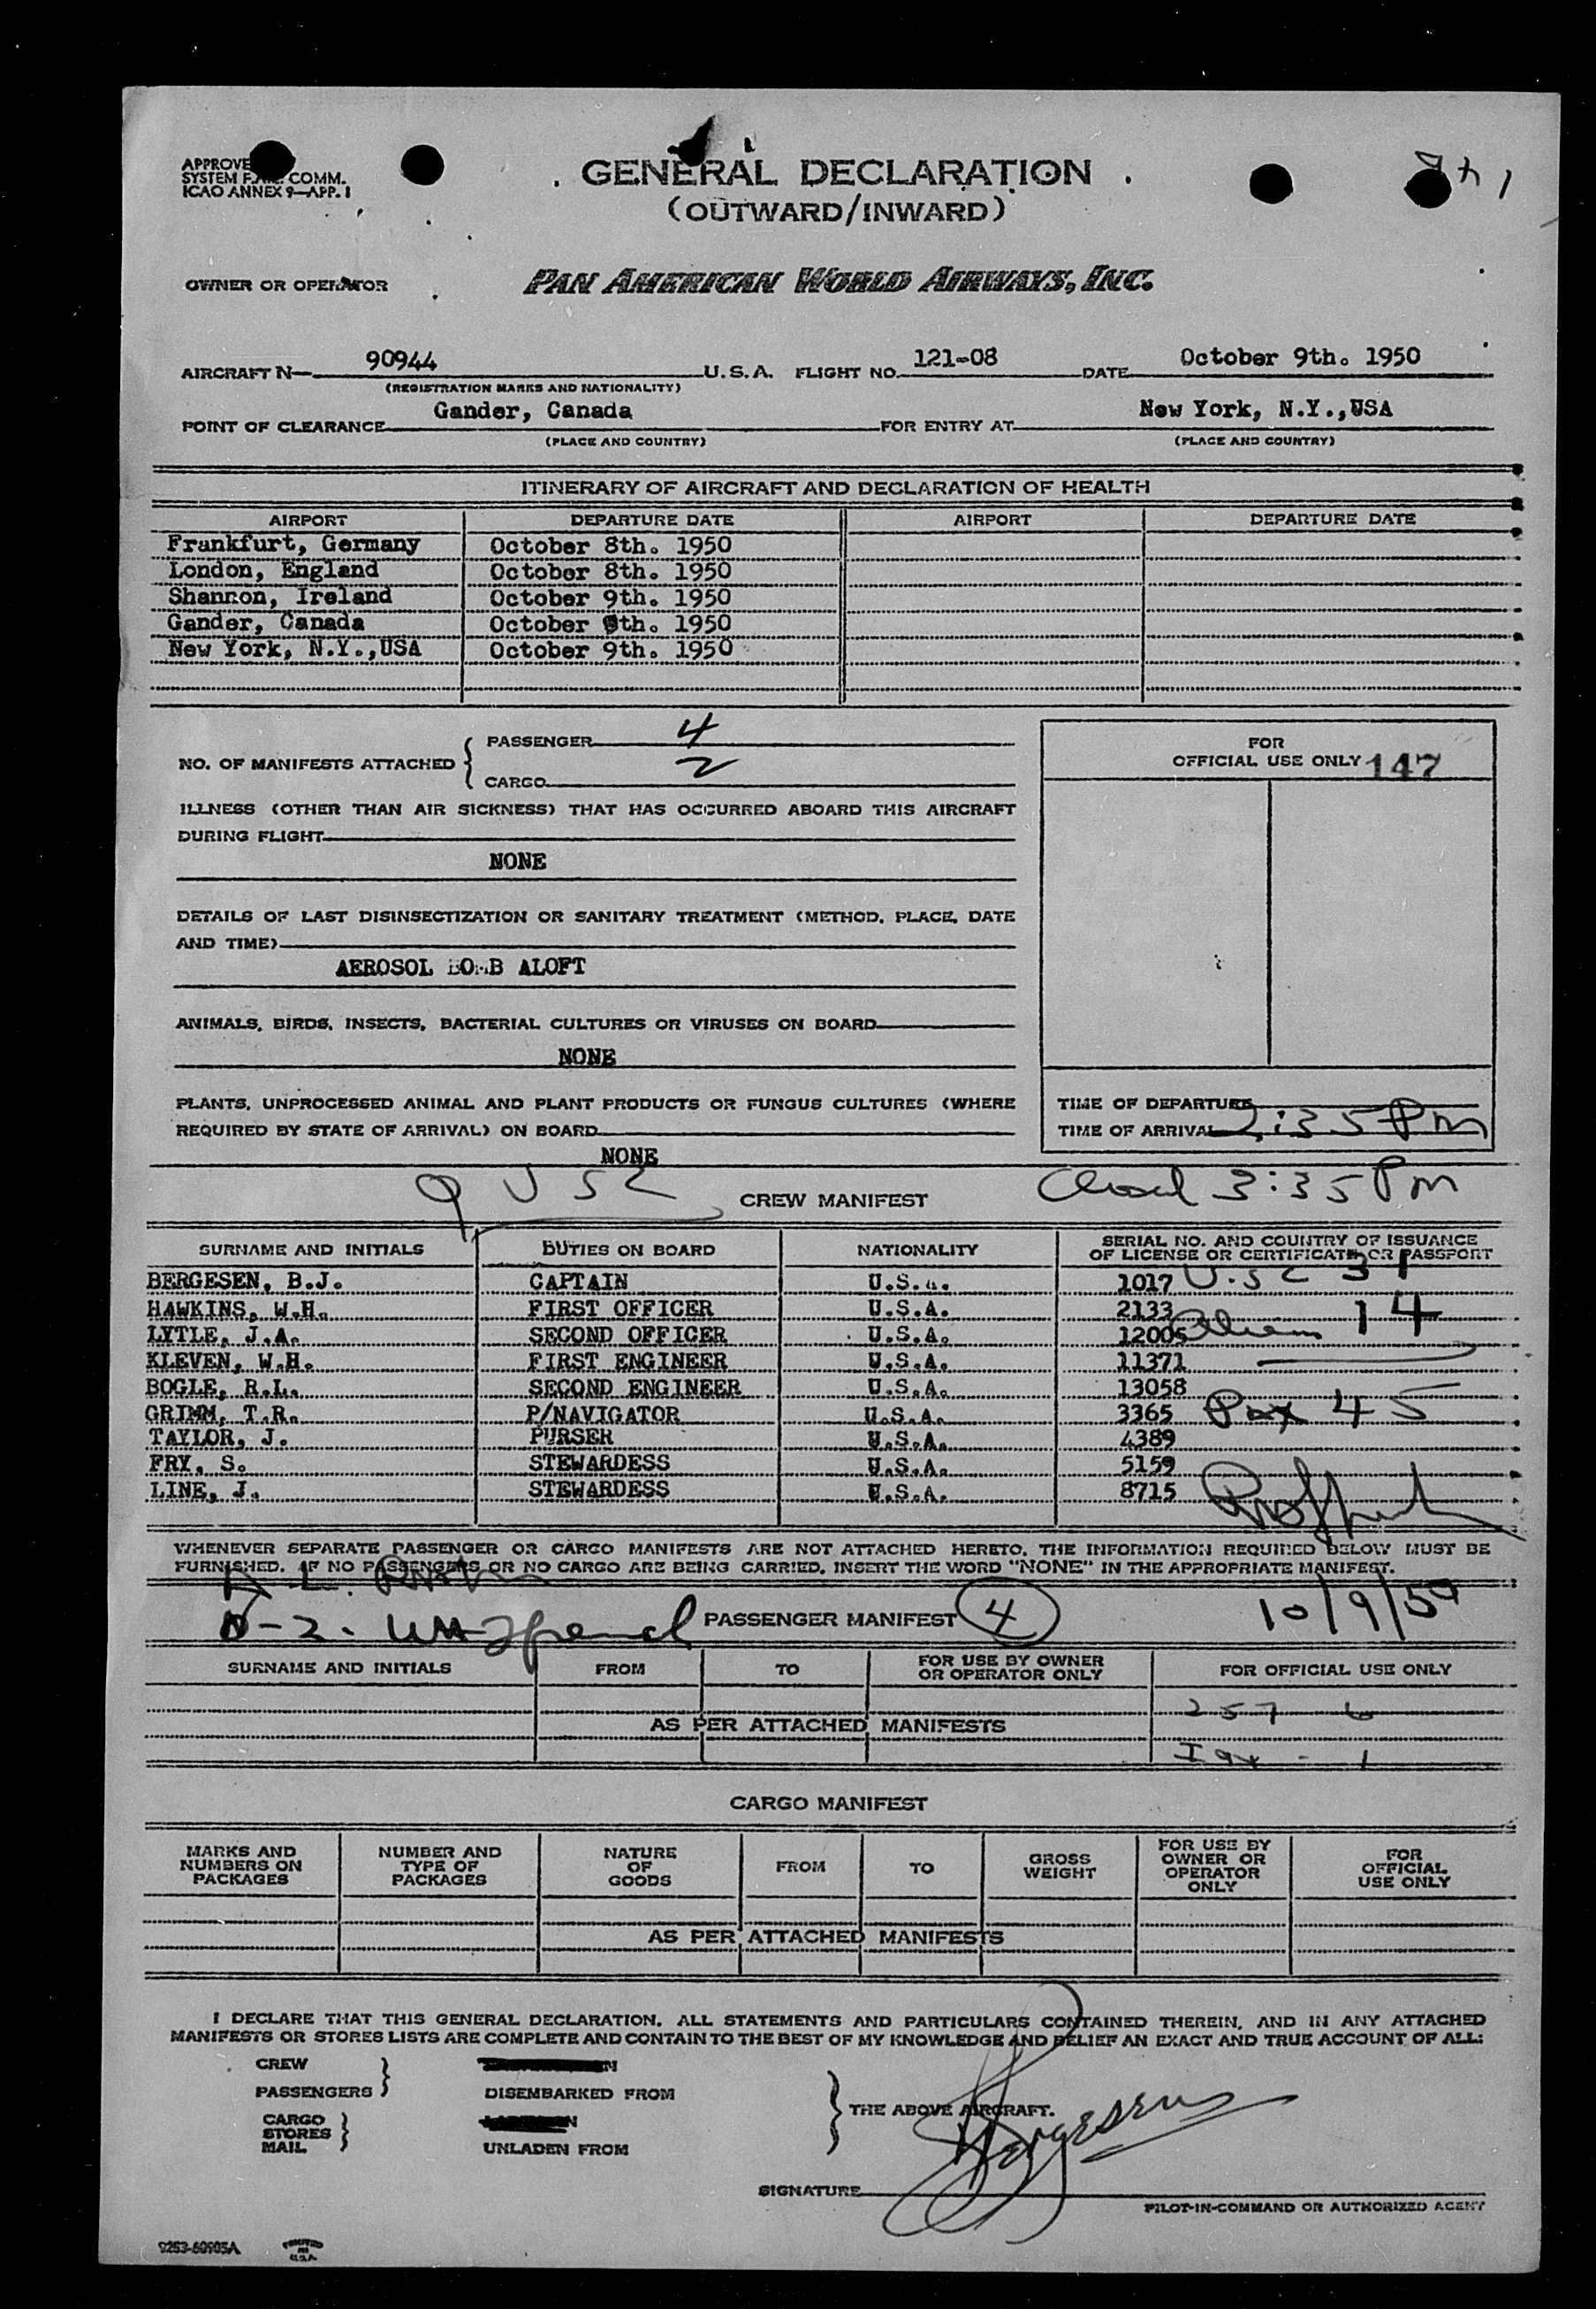 GENERAL DECLARATION
(OUTWARD/INWARD)
SYSTEM COMM.
ICAO ANNEX 9—APP. 1
OWNER OR OPERATOR PAN AMERICAN WORLD AIRWAYS, INC.
AIRCRAFT N— 90944 U.S.A. FLIGHT NO. 121-08 DATE October 9th. 1950
(REGISTRATION MARKS AND NATIONALITY)
POINT OF CLEARANCE Gander, Canada FOR ENTRY AT New York, N.Y.,USA
(PLACE AND COUNTRY) (PLACE AND COUNTRY)
ITINERARY OF AIRCRAFT AND DECLARATION OF HEALTH
AIRPORT DEPARTURE DATE AIRPORT DEPARTURE DATE
Frankfurt, Germany October 8th. 1950
London, England October 8th. 1950
Shannon, Ireland October 9th. 1950
Gander, Canada October 9th. 1950
New York, N.Y.,USA October 9th. 1950
NO. OF MANIFESTS ATTACHED { PASSENGER 4
CARGO 2
FOR
OFFICIAL USE ONLY 147
ILLNESS (OTHER THAN AIR SICKNESS) THAT HAS OCCURRED ABOARD THIS AIRCRAFT
DURING FLIGHT
NONE
DETAILS OF LAST DISINSECTIZATION OR SANITARY TREATMENT (METHOD, PLACE, DATE
AND TIME)
AEROSOL BOMB ALOFT
ANIMALS, BIRDS, INSECTS, BACTERIAL CULTURES OR VIRUSES ON BOARD
NONE
PLANTS, UNPROCESSED ANIMAL AND PLANT PRODUCTS OR FUNGUS CULTURES (WHERE
REQUIRED BY STATE OF ARRIVAL) ON BOARD
NONE
TIME OF DEPARTURE
TIME OF ARRIVAL 2:35 PM
9 USC CREW MANIFEST Closed 3:35 PM
SURNAME AND INITIALS DUTIES ON BOARD NATIONALITY SERIAL NO. AND COUNTRY OF ISSUANCE
OF LICENSE OR CERTIFICATE OR PASSPORT
BERGESEN, B.J. CAPTAIN U.S.A. 1017 U.S C 31
HAWKINS, W.H. FIRST OFFICER U.S.A. 2133
LYTLE, J.A. SECOND OFFICER U.S.A. 12005 Aliens 14
KLEVEN, W.H. FIRST ENGINEER U.S.A. 11371
BOGLE, R.L. SECOND ENGINEER U.S.A. 13058
GRIMM, T.R. P/NAVIGATOR U.S.A. 3365 Pax 45
TAYLOR, J. PURSER U.S.A. 4389
FRY, S. STEWARDESS U.S.A. 5159
LINE, J. STEWARDESS U.S.A. 8715
WHENEVER SEPARATE PASSENGER OR CARGO MANIFESTS ARE NOT ATTACHED HERETO, THE INFORMATION REQUIRED BELOW MUST BE
FURNISHED. IF NO PASSENGERS OR NO CARGO ARE BEING CARRIED, INSERT THE WORD "NONE" IN THE APPROPRIATE MANIFEST.
PASSENGER MANIFEST 4 10/9/50
SURNAME AND INITIALS FROM TO FOR USE BY OWNER
OR OPERATOR ONLY FOR OFFICIAL USE ONLY
257 6
AS PER ATTACHED MANIFESTS
CARGO MANIFEST
MARKS AND
NUMBERS ON
PACKAGES
NUMBER AND
TYPE OF
PACKAGES
NATURE
OF
GOODS
FROM
TO
GROSS
WEIGHT
FOR USE BY
OWNER OR
OPERATOR
ONLY
FOR
OFFICIAL
USE ONLY
AS PER ATTACHED MANIFESTS
I DECLARE THAT THIS GENERAL DECLARATION, ALL STATEMENTS AND PARTICULARS CONTAINED THEREIN, AND IN ANY ATTACHED
MANIFESTS OR STORES LISTS ARE COMPLETE AND CONTAIN TO THE BEST OF MY KNOWLEDGE AND BELIEF AN EXACT AND TRUE ACCOUNT OF ALL:
CREW
PASSENGERS } DISEMBARKED FROM
CARGO
STORES
MAIL } UNLADEN FROM
} THE ABOVE AIRCRAFT.
Bergesen
SIGNATURE
PILOT-IN-COMMAND OR AUTHORIZED AGENT
9253-60905A
PRINTED
IN
U.S.A.